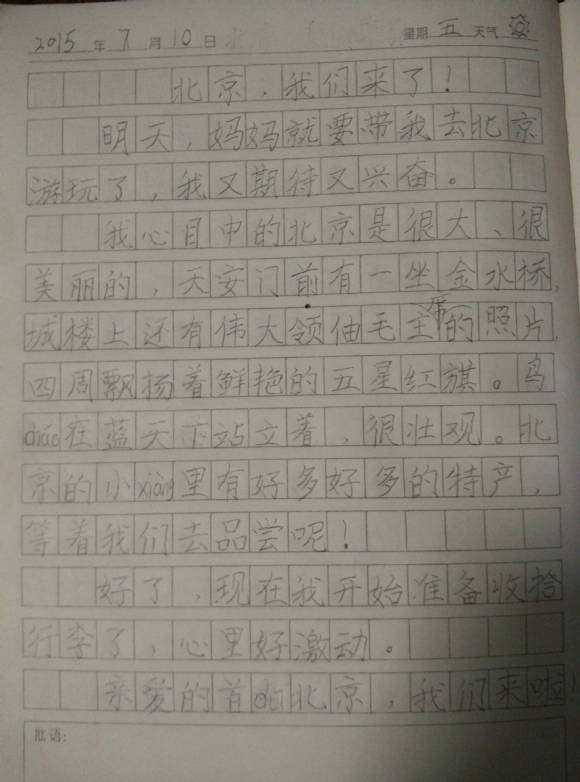 2015年7月10日 星期五天气
北京，我们来了！
明天，妈妈就要带我去北京
游玩了，我又期待又兴奋。
我心目中的北京是很大、很
美丽的，天安门前有一坐金水桥，
城楼上还有伟大领伷毛主席的照片，
四周飘扬着鲜艳的五星红旗。鸟
cháo在蓝天下站立着，很壮观。北
京的小xiàng里有好多好多的特产，
等着我们去品尝呢！
好了，现在我开始准备收拾
行李了，心里好激动。
亲爱的首都北京，我们来啦
批语：